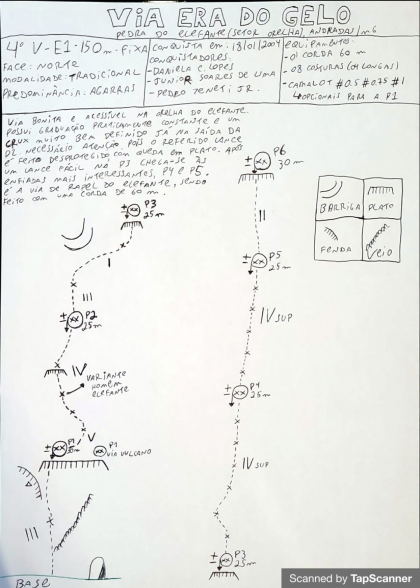 VIA ERA DO GELO
PEDRA DO ELEFANTE (SETOR ORELHA), ANDRADAS/MG
4º V-E1-150m-FIXA
FACE: NORTE
MODALIDADE: TRADICIONAL
PREDOMINÂNCIA: AGARRAS
CONQUISTA EM: 18/01/2004
CONQUISTADORES:
-DANIELA C. LOPES
-JUNIOR SOARES DE LIMA
-PEDRO ZENETI JR.
EQUIPAMENTO:
-01 CORDA 60 m
-08 COSTURAS (02 LONGAS)
-CAMALOT #0.5 #0.75 #1
OPCIONAIS PARA A P1
VIA BONITA E ACESSÍVEL NA ORELHA DO ELEFANTE.
POSSUI GRADUAÇÃO PRATICAMENTE CONSTANTE E UM
CRUX MUITO BEM DEFINIDO JÁ NA SAÍDA DA
NECESSÁRIO ATENÇÃO, POIS O REFERIDO LANCE
É FEITO DESPROTEGIDO, COM QUEDA EM PLATÔ. APÓS
UM LANCE FÁCIL NA P3 CHEGA-SE ÀS
ENFIADAS MAIS INTERESSANTES, P4 E P5.
É A VIA DE RAPEL DO ELEFANTE, SENDO
FEITO COM UMA CORDA DE 60 m.
P6
30m
BARRIGA
PLATÔ
FENDA
VEIO
P3
25m
II
I
P5
25m
III
P2
25m
IV SUP
IV
VARIANTE
HOMEM
ELEFANTE
P4
25m
V
P1
30m
P1
VIA VULCANO
IV SUP
III
P3
25m
BASE
Scanned by TapScanner